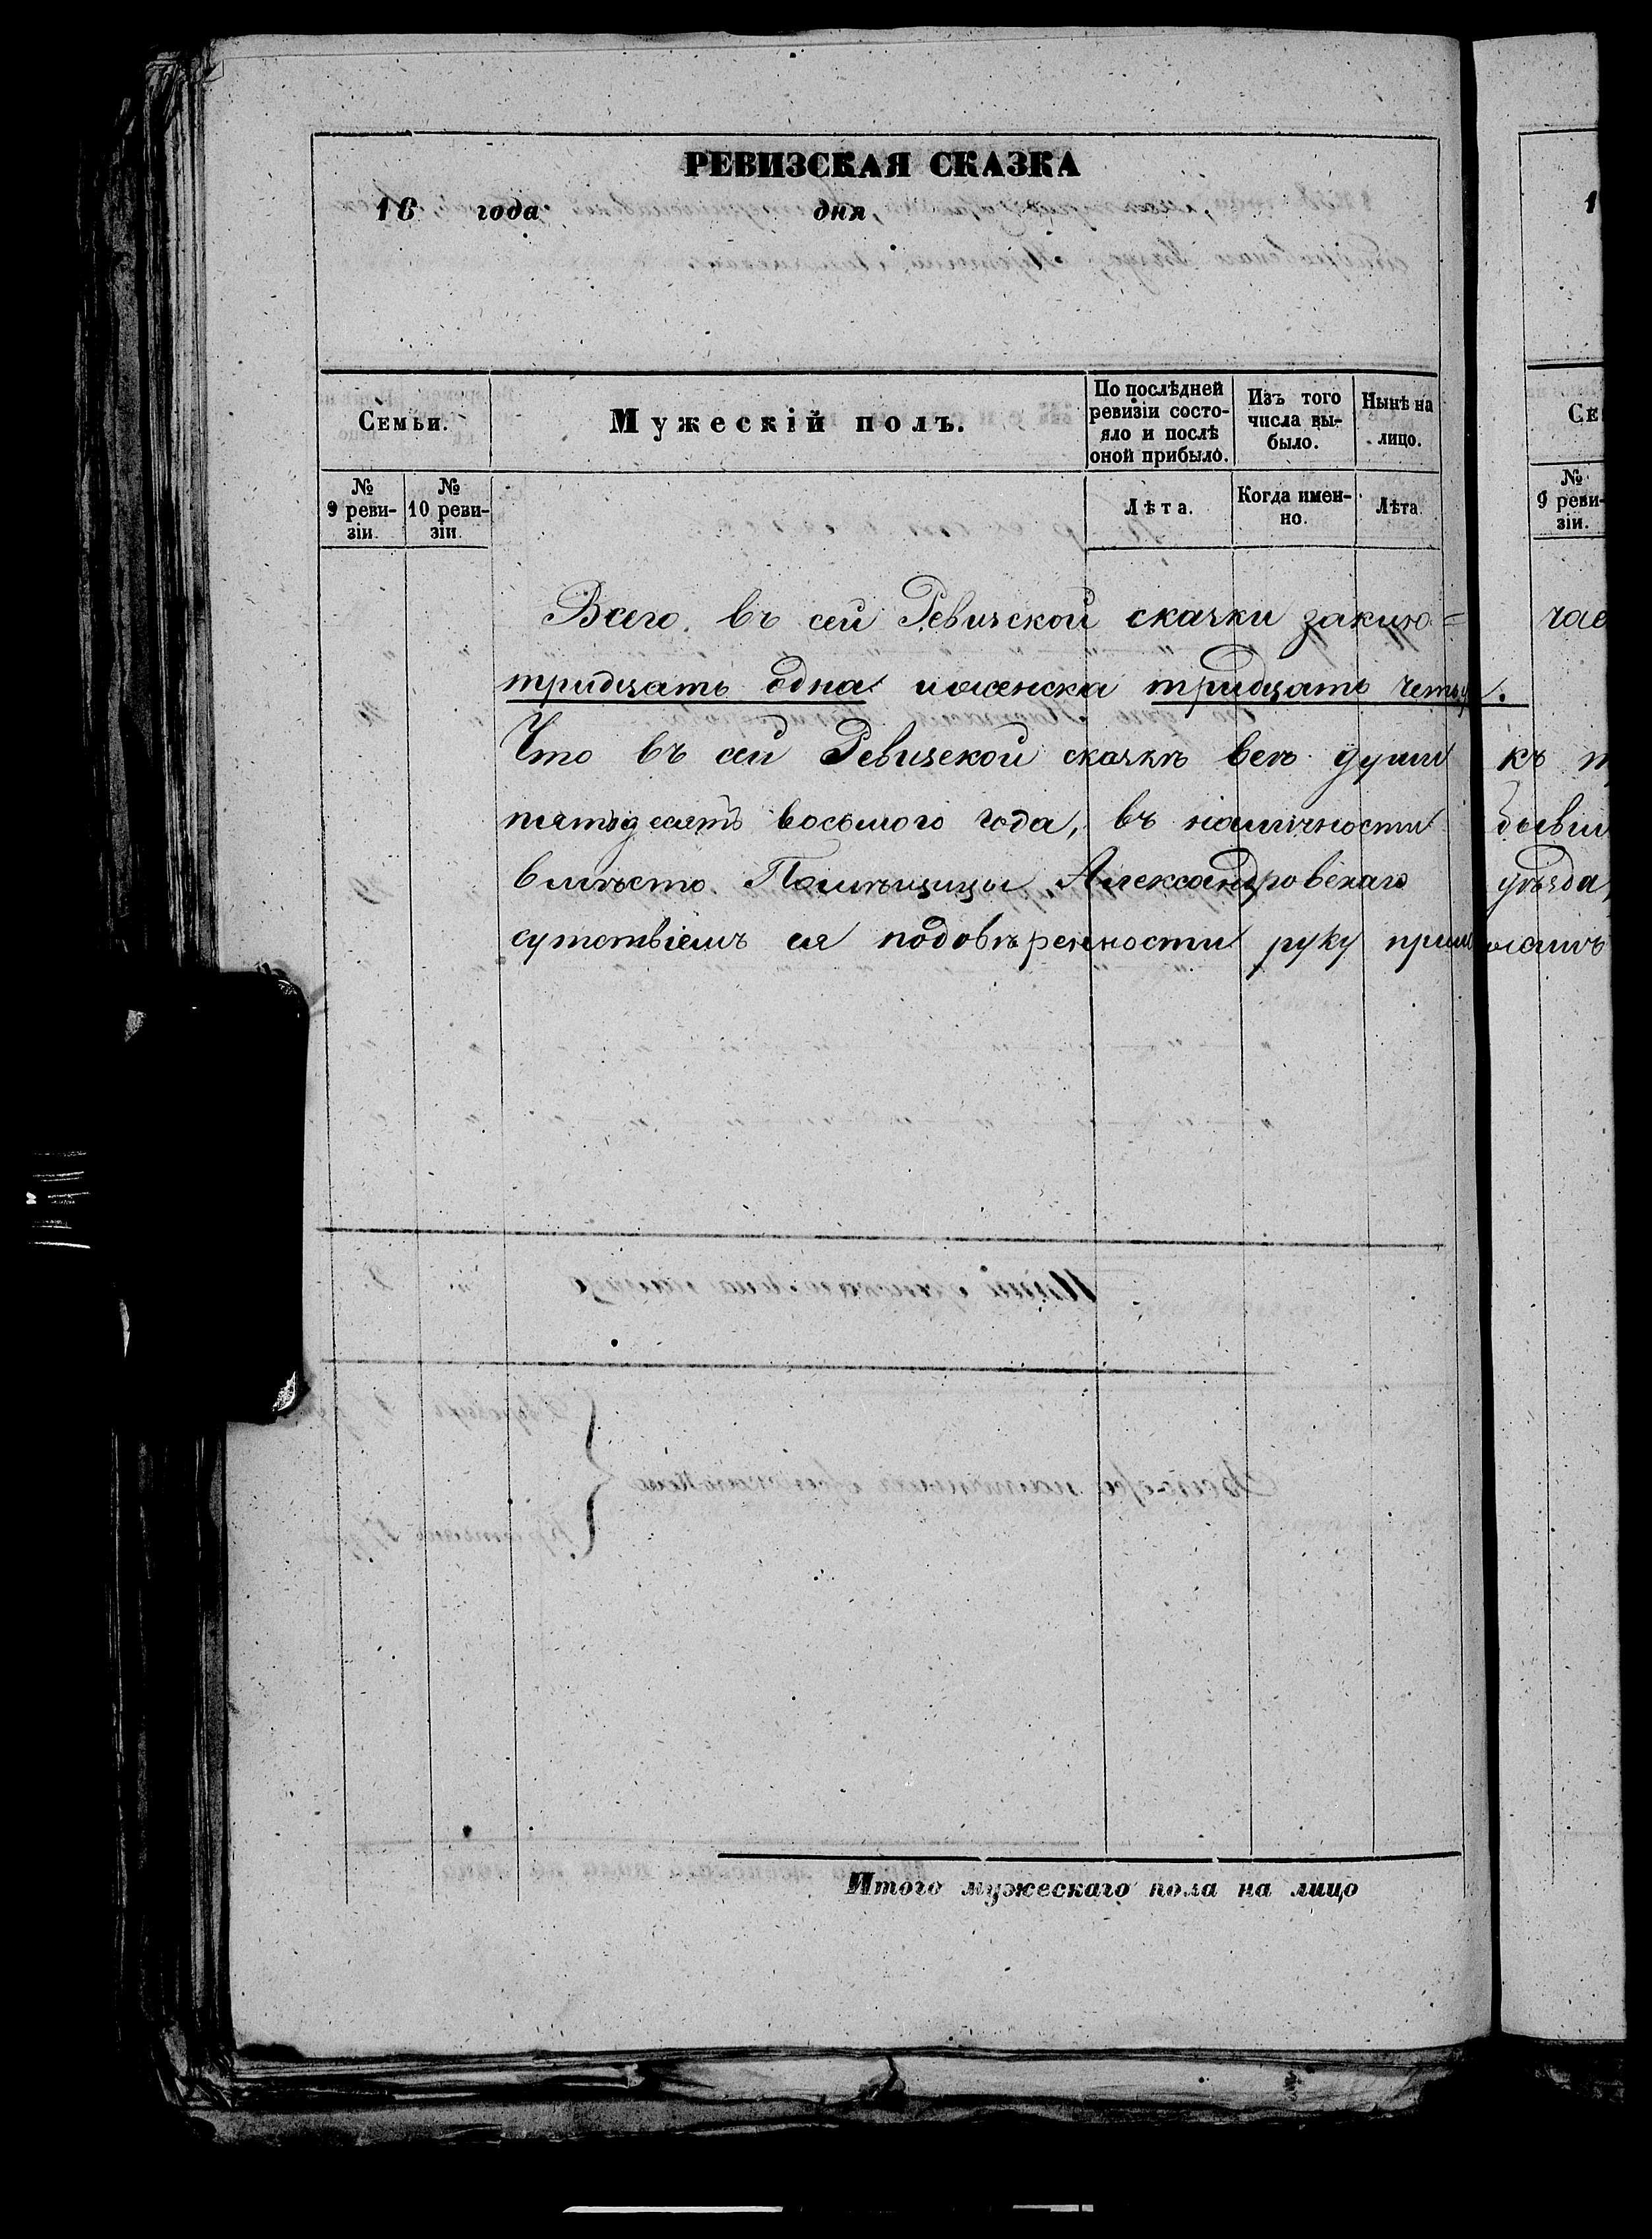 РЕВИЗСКАЯ СКАЗКА
18 года дня
Семьи.
Мужескій полъ.
По послѣдней ревизіи состо-
яло и послѣ оной прибыло.
Изъ того числа вы-
было.
Нынѣ на лицо.
№ 9 реви-
зіи.
№ 10 реви-
зіи.
Лѣта.
Когда имен-
но.
Лѣта.
Всего въ сей Ревизской сказки заклю= чае
тридцать одна и женска тридцать четыр.
Что въ сей Ревизской сказкѣ всѣ души къ
пятьдесятъ восьмого года, въ наличности бывш
вмѣсто Помѣщицы Александровскаго уѣзда,
сутствіемъ ея подовѣренности руку прил
Итого мужескаго пола на лицо
1
Се
№ 9 реви-
зіи.